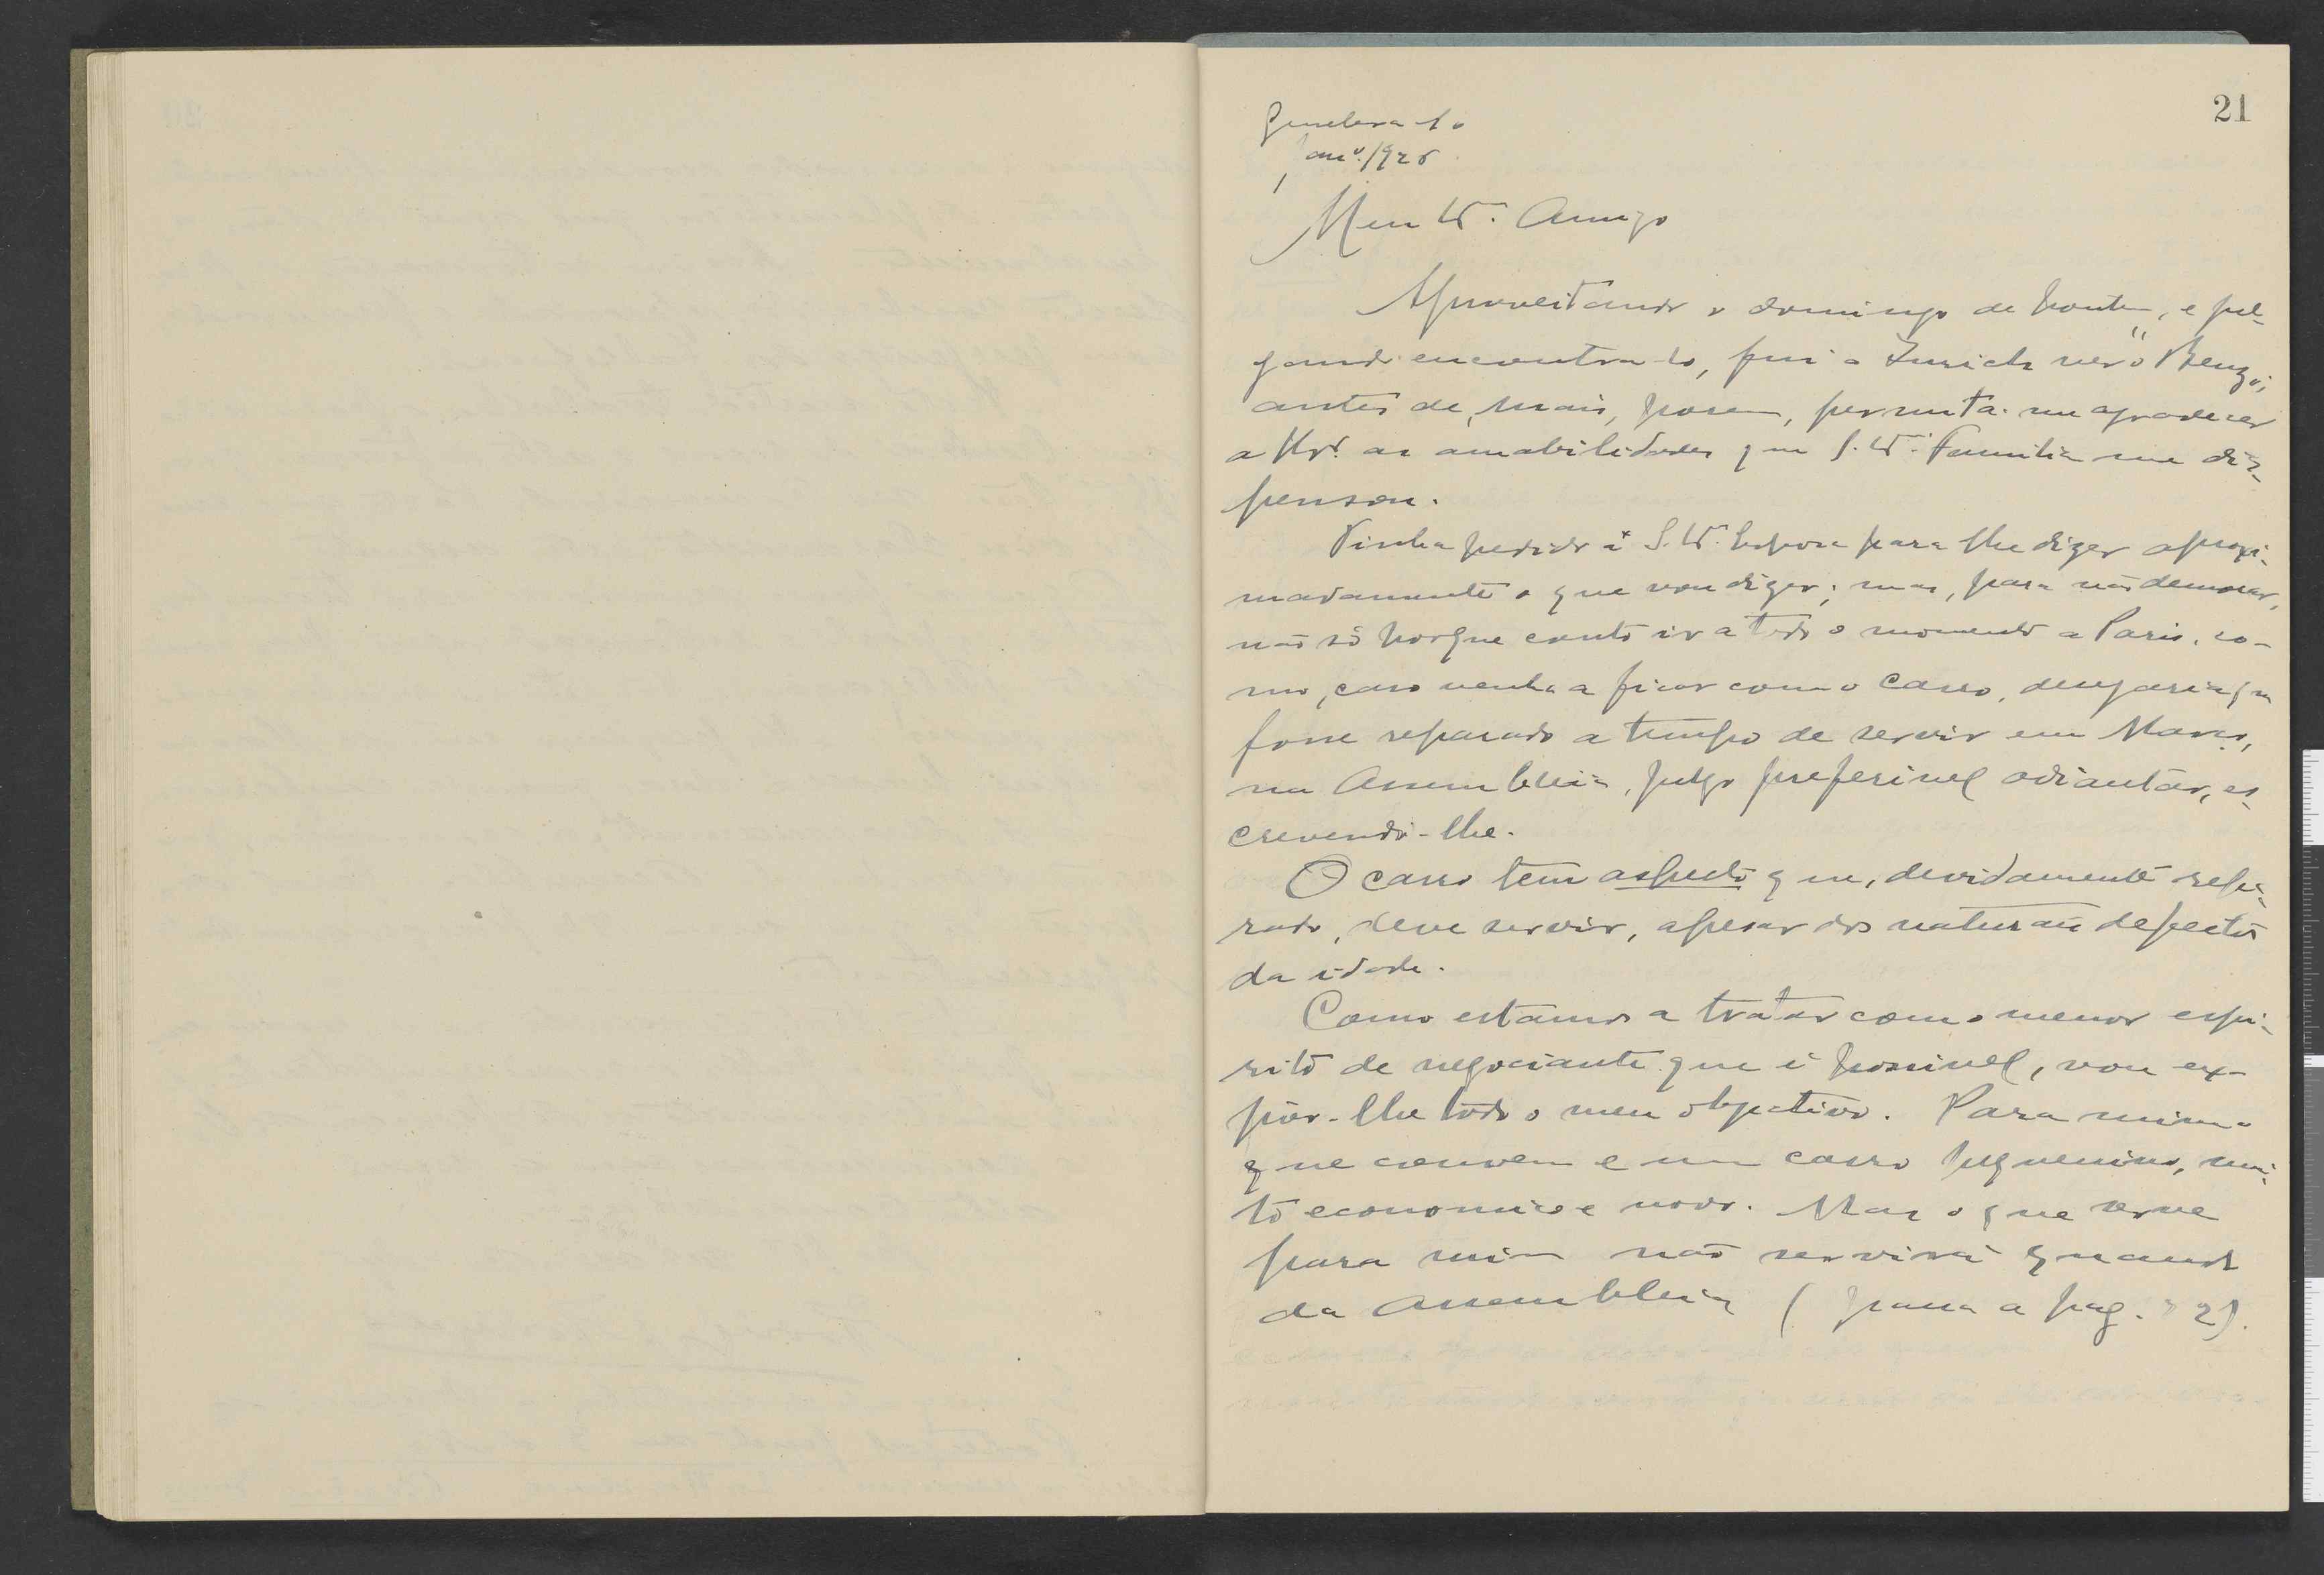 21
Genebra
Jan.º 1926
Meu Il. Amigo
Aproveitando o domingo de hontem, e jul-
gando encontra-lo, fui a Zurich ver o "Benz";
antes de mais, porem, permita-me agradecer
a as amabilidades que S. Il. Familia me dis-
pensou.
Tinha pedido á S. Il. Esposa para lhe dizer aproxi-
madamente o que vou dizer; mas, para não demorar,
não só porque conto ir a todo o momento a Paris, co-
mo, caso venha a ficar com o carro, desejaria que
fosse reparado a tempo de servir em Março,
na Assembleia, julgo preferivel adiantar, es-
crevendo-lhe.
O carro tem aspecto que, devidamente repa-
rado, deve servir, apesar dos naturais defeitos
da idade.
Como estamos a tratar com o menor espi-
rito de negociante que é possivel, vou ex-
pôr-lhe todo o meu objectivo. Para mim o
que convem é um carro pequenino, mui-
to economico e novo. Mas o que serve
para mim não servirá quando
da Assembleia (passa a pag. 2).